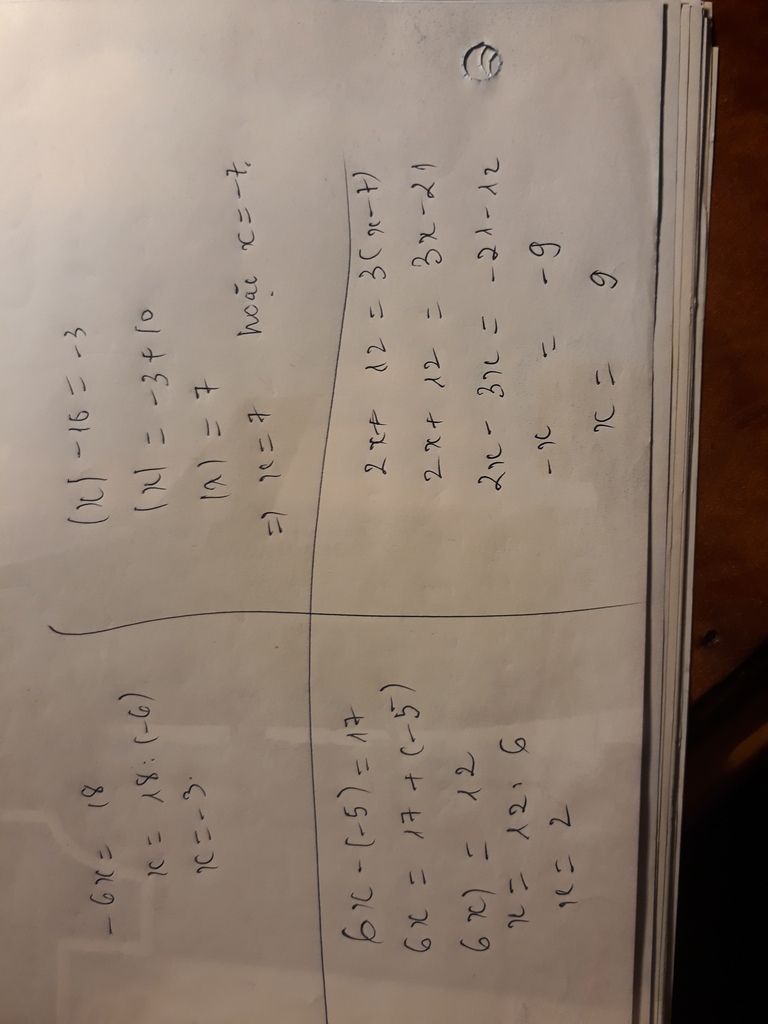 -6x = 18
x = 18 : (-6)
x = -3.
|x| - 10 = -3
|x| = -3 + 10
|x| = 7
=) x = 7 hoặc x = -7.
6x - (-5) = 17
6x = 17 + (-5)
6x) = 12
x = 12 : 6
x = 2
2x + 12 = 3(x - 7)
2x + 12 = 3x - 21
2x - 3x = -21 - 12
-x = -9
x = 9